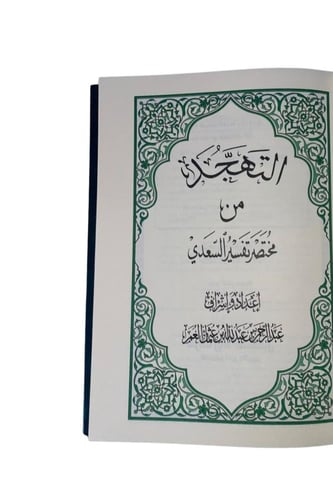 التهجُّد
من
مختصر تفسير السعدي
إعداد وإشراف
عبد الرحمن بن عبد الله بن عثمان العمر